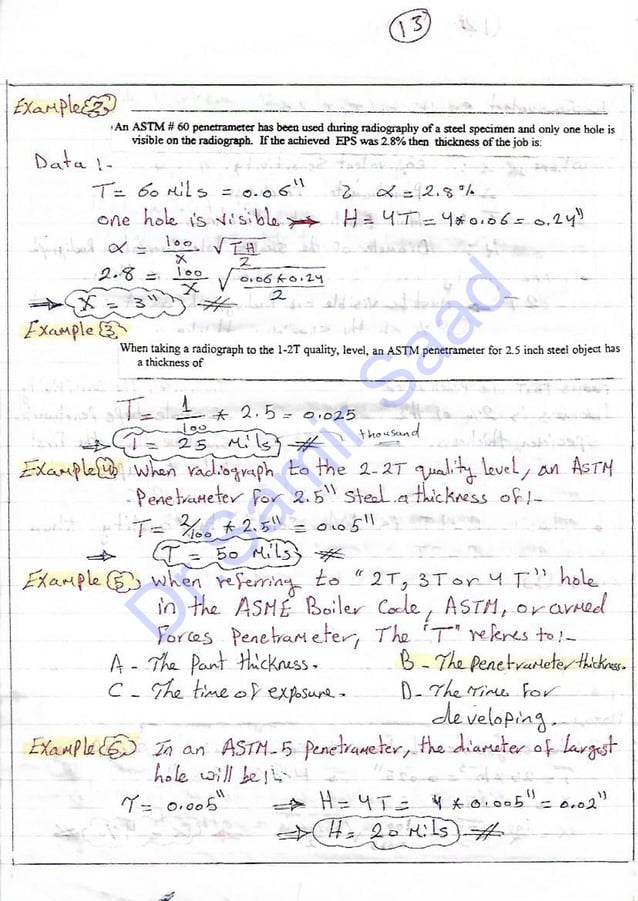 13
Example {2}
An ASTM # 60 penetrameter has been used during radiography of a steel specimen and only one hole is
visible on the radiograph. If the achieved EPS was 2.8% then thickness of the job is:
Data :-
T = 60 Mils = 0.06" & α = 2.8%
one hole is visible → H = 4T = 4*0.06 = 0.24"
α = 100/X √(TH/2)
2.8 = 100/X √(0.06*0.24/2)
⇒ X = 3" #
Example {3}
When taking a radiograph to the 1-2T quality, level, an ASTM penetrameter for 2.5 inch steel object has
a thickness of
T = 1/100 * 2.5 = 0.025
⇒ T = 25 Mils # thousand
Example (4) When radiograph to the 2-2T quality level, an ASTM
Penetrameter for 2.5" Steel a thickness of :-
T = 2/100 * 2.5" = 0.05"
⇒ T = 50 Mils #
Example (5) When referring to "2T, 3T or 4T" hole
in the ASME Boiler Code, ASTM, or armed
Forces Penetrameter, The "T" referes to :-
A - The Part thickness. B - The Penetrameter thickness.
C - The time of exposure. D - The Time for
developing.
Example (6) In an ASTM-5 Penetrameter, the diameter of largest
hole will be :-
T = 0.005" ⇒ H = 4T = 4*0.005" = 0.02"
⇒ H = 20 Mils #
Dr Samir Saad